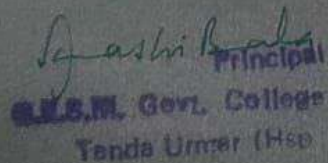 Principal
G.K.S.M. Govt. College
Tanda Urmar (Hsp